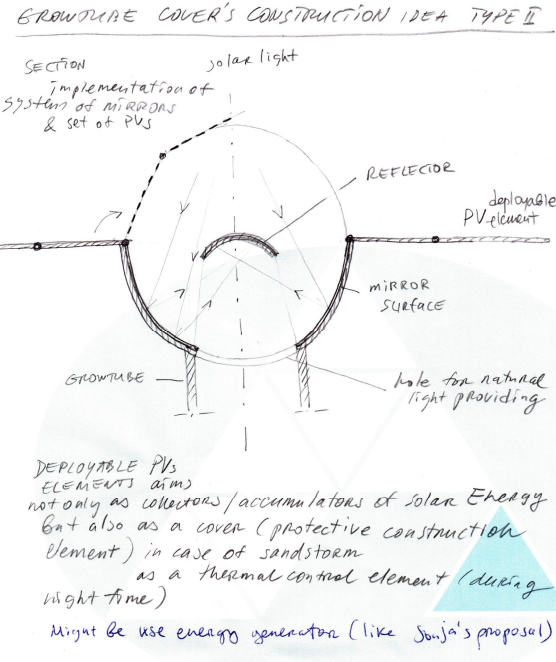 GROWTUBE COVER'S CONSTRUCTION IDEA TYPE II
SECTION
implementation of
system of MIRRORS
& set of PVs
solar light
REFLECTOR
deployable
PV element
MIRROR
SURFACE
GROWTUBE
hole for natural
light providing
DEPLOYABLE PVs
ELEMENTS aims
not only as collectors/accumulators of solar Energy
But also as a cover (protective construction
element) in case of sandstorm
as a thermal control element (during
night time)
Might be use energy generator (like Sonja's proposal)